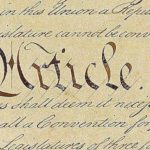 in this Union a Repub
islature cannot be conv
Article.
es shall deem it neces
all a Convention for
Legislatures of three